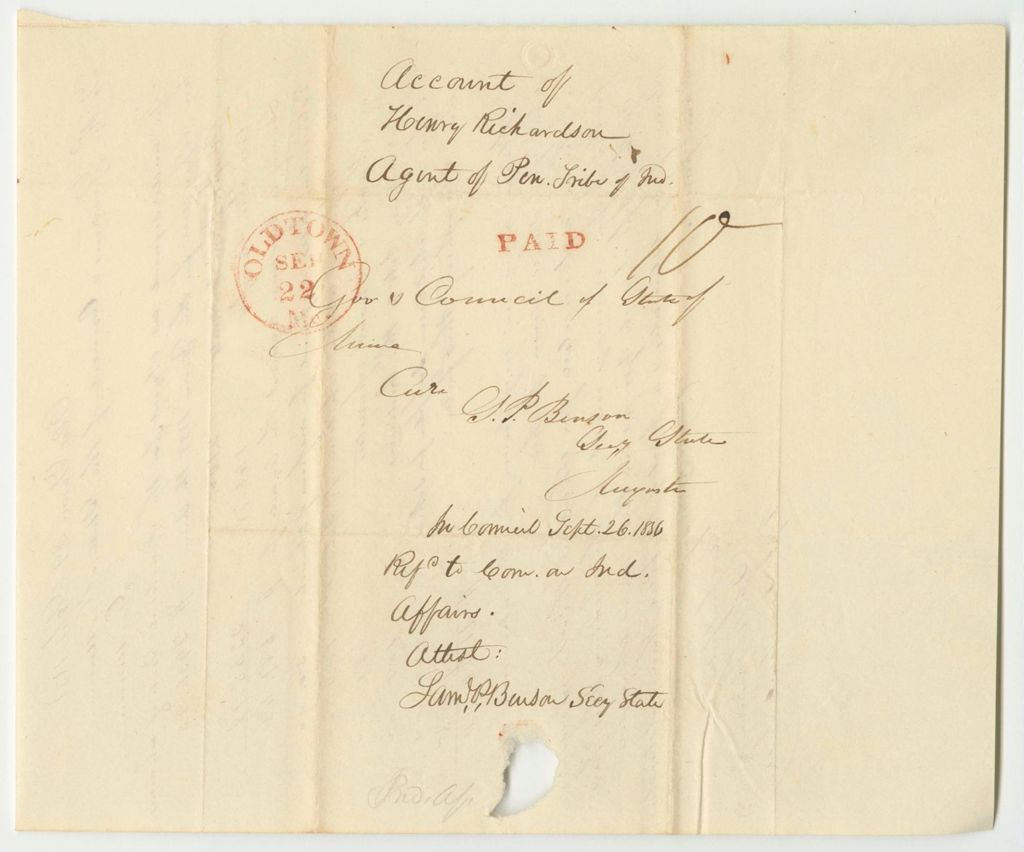 Account of
Henry Richardson
Agent of Pen. Tribe of Ind.
OLDTOWN
SEP
22
Me.
PAID
10
Gov & Council of State of
Maine
Care
S. P. Benson
Secy State
Augusta
In Council Sept. 26. 1836
Refd to Com. on Ind.
Affairs.
Attest:
Saml. P. Benson Secy State